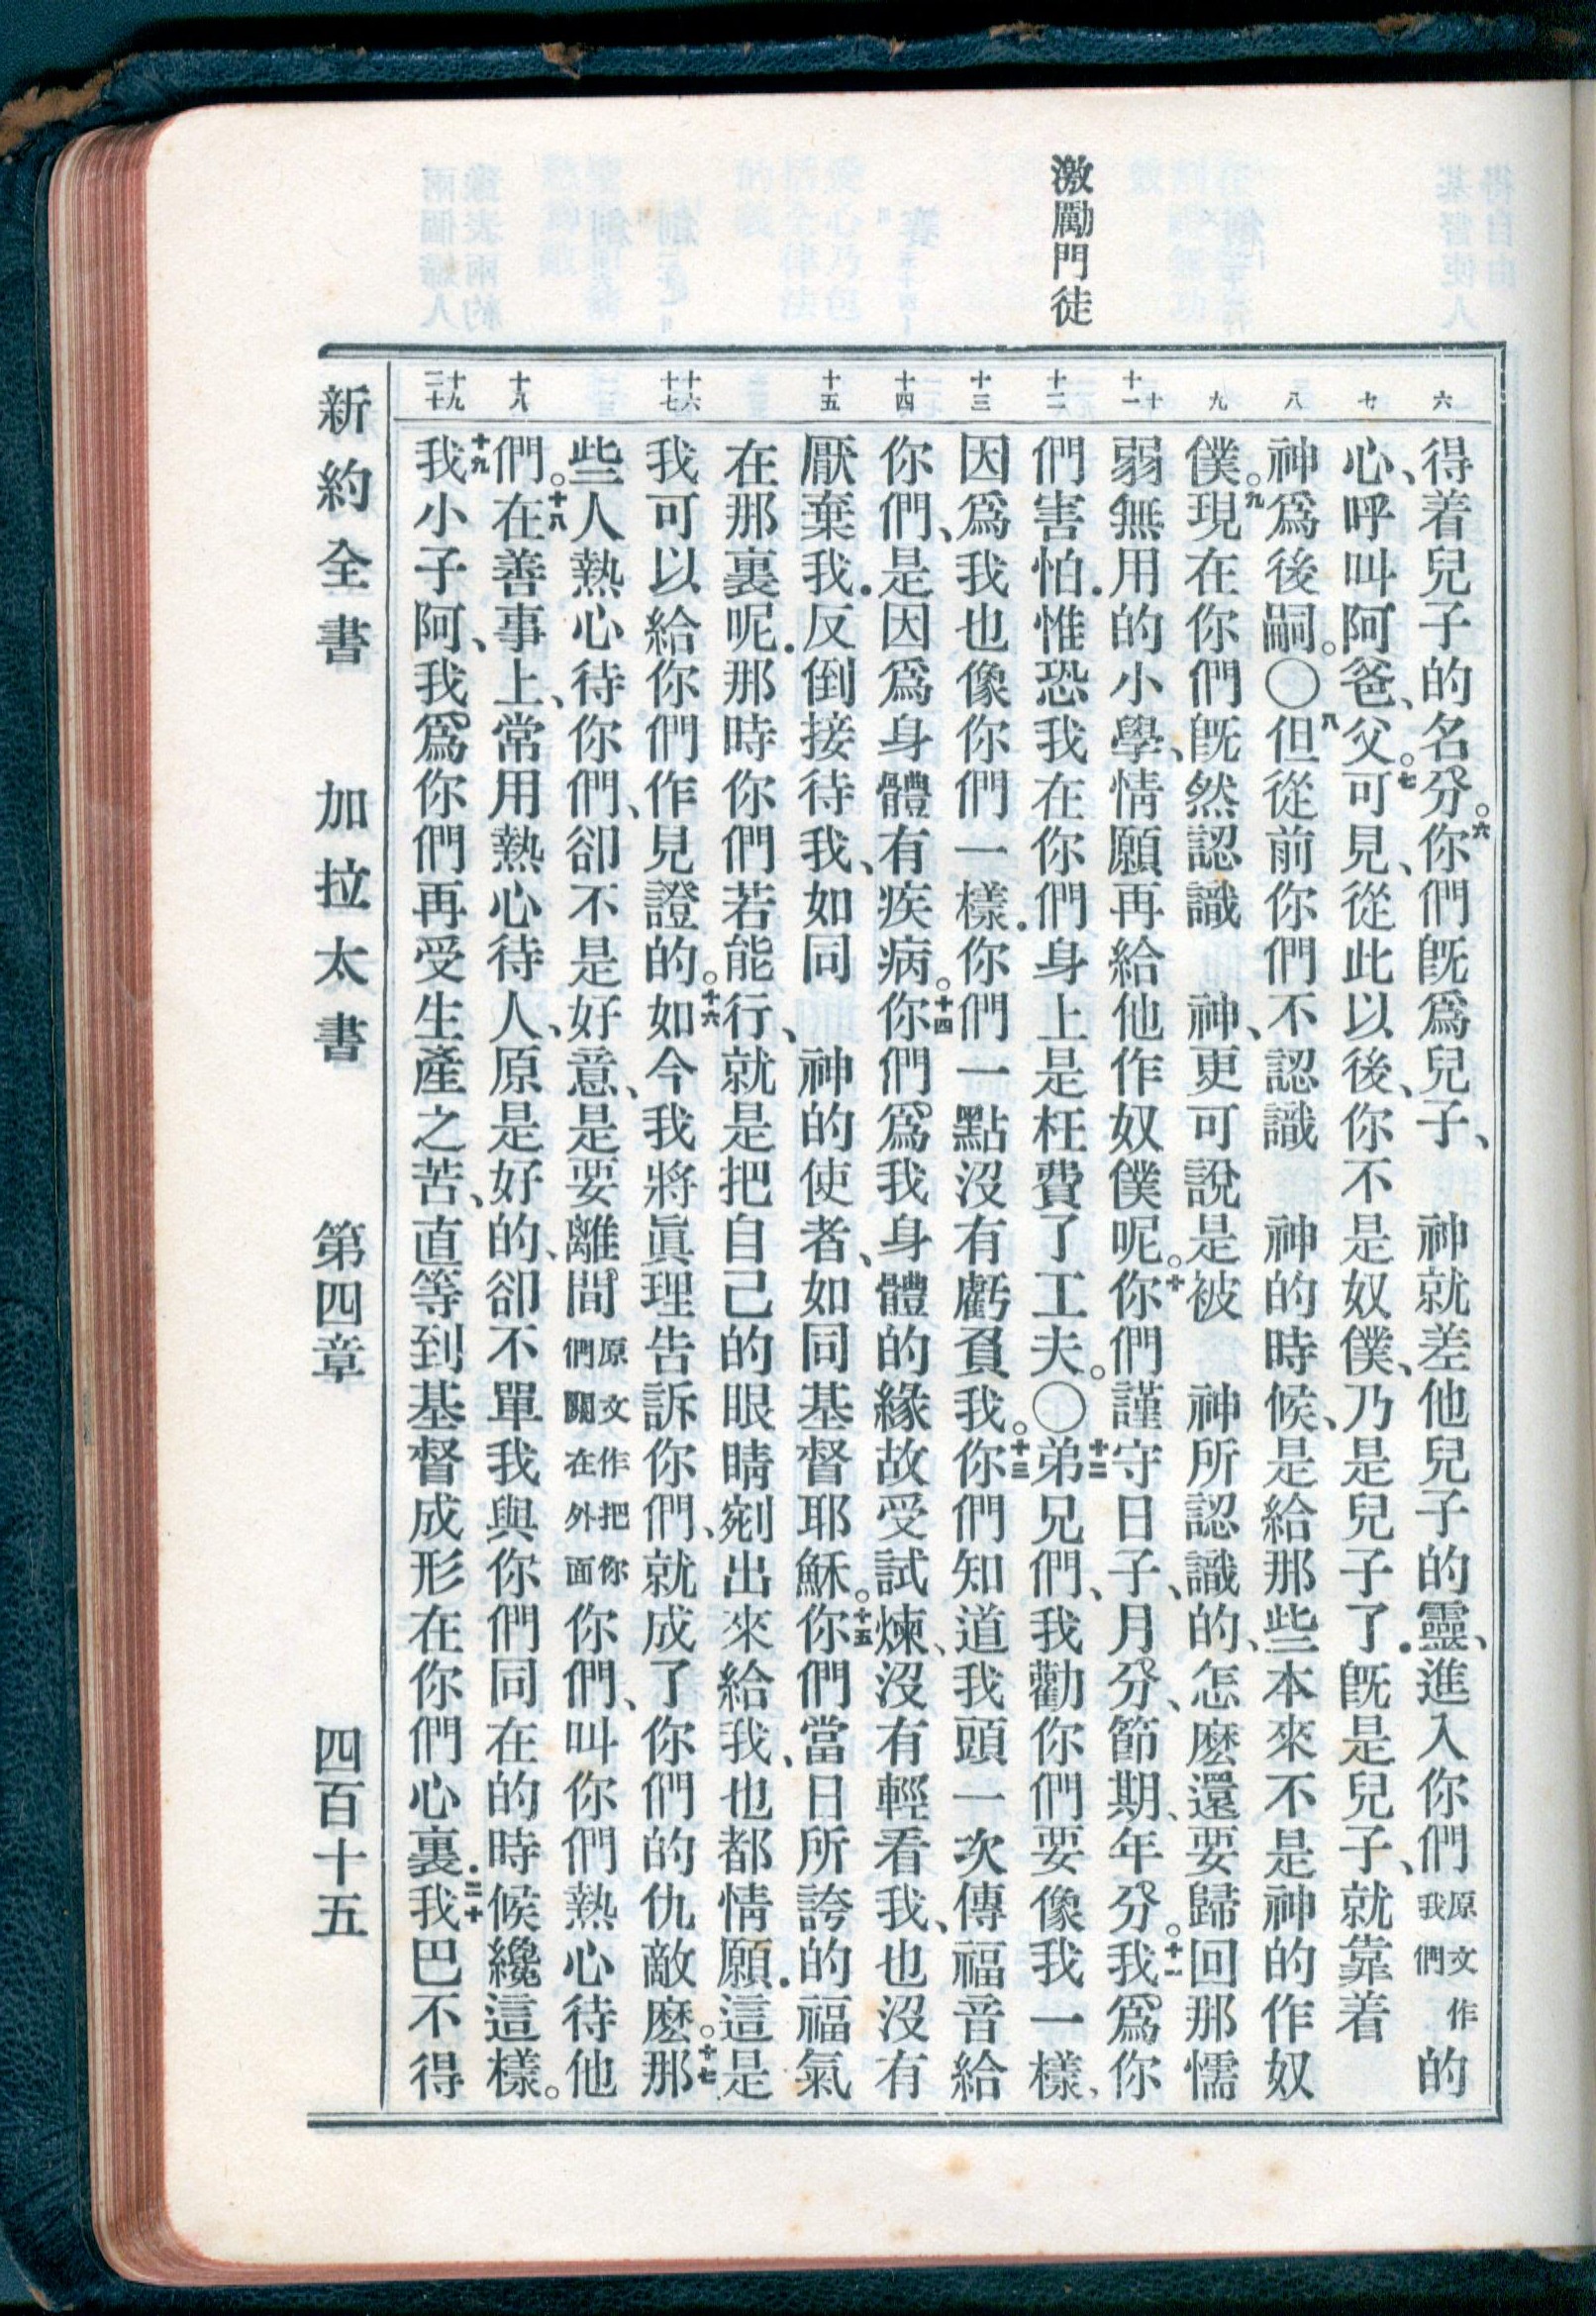 激勵門徒
六
得着兒子的名分。六你們旣爲兒子、 神就差他兒子的靈、進入你們原文作我們的
七
心、呼叫阿爸、父。七可見、從此以後、你不是奴僕、乃是兒子了．旣是兒子、就靠着
八
神爲後嗣。〇八但從前你們不認識 神的時候、是給那些本來不是神的作奴
九
僕。九現在你們旣然認識 神、更可說是被 神所認識的、怎麽還要歸回那懦
十 十一
弱無用的小學、情願再給他作奴僕呢。十你們謹守日子、月分、節期、年分。十一我爲你
十二
們害怕．惟恐我在你們身上是枉費了工夫。〇十二弟兄們、我勸你們要像我一樣、
十三
因爲我也像你們一樣．你們一點沒有虧負我。十三你們知道我頭一次傳福音給
十四
你們、是因爲身體有疾病。十四你們爲我身體的緣故受試煉、沒有輕看我、也沒有
十五
厭棄我．反倒接待我、如同 神的使者、如同基督耶穌。十五你們當日所誇的福氣
在那裏呢．那時你們若能行、就是把自己的眼睛剜出來給我、也都情願．這是
十六 十七
我可以給你們作見證的。十六如今我將眞理告訴你們、就成了你們的仇敵麽。十七那
些人熱心待你們、卻不是好意、是要離間原文作把你們關在外面你們、叫你們熱心待他
十八
們。十八在善事上、常用熱心待人、原是好的、卻不單我與你們同在的時候纔這樣。
十九 二十
十九我小子阿、我爲你們再受生產之苦、直等到基督成形在你們心裏．二十我巴不得
新約全書 加拉太書 第四章 四百十五